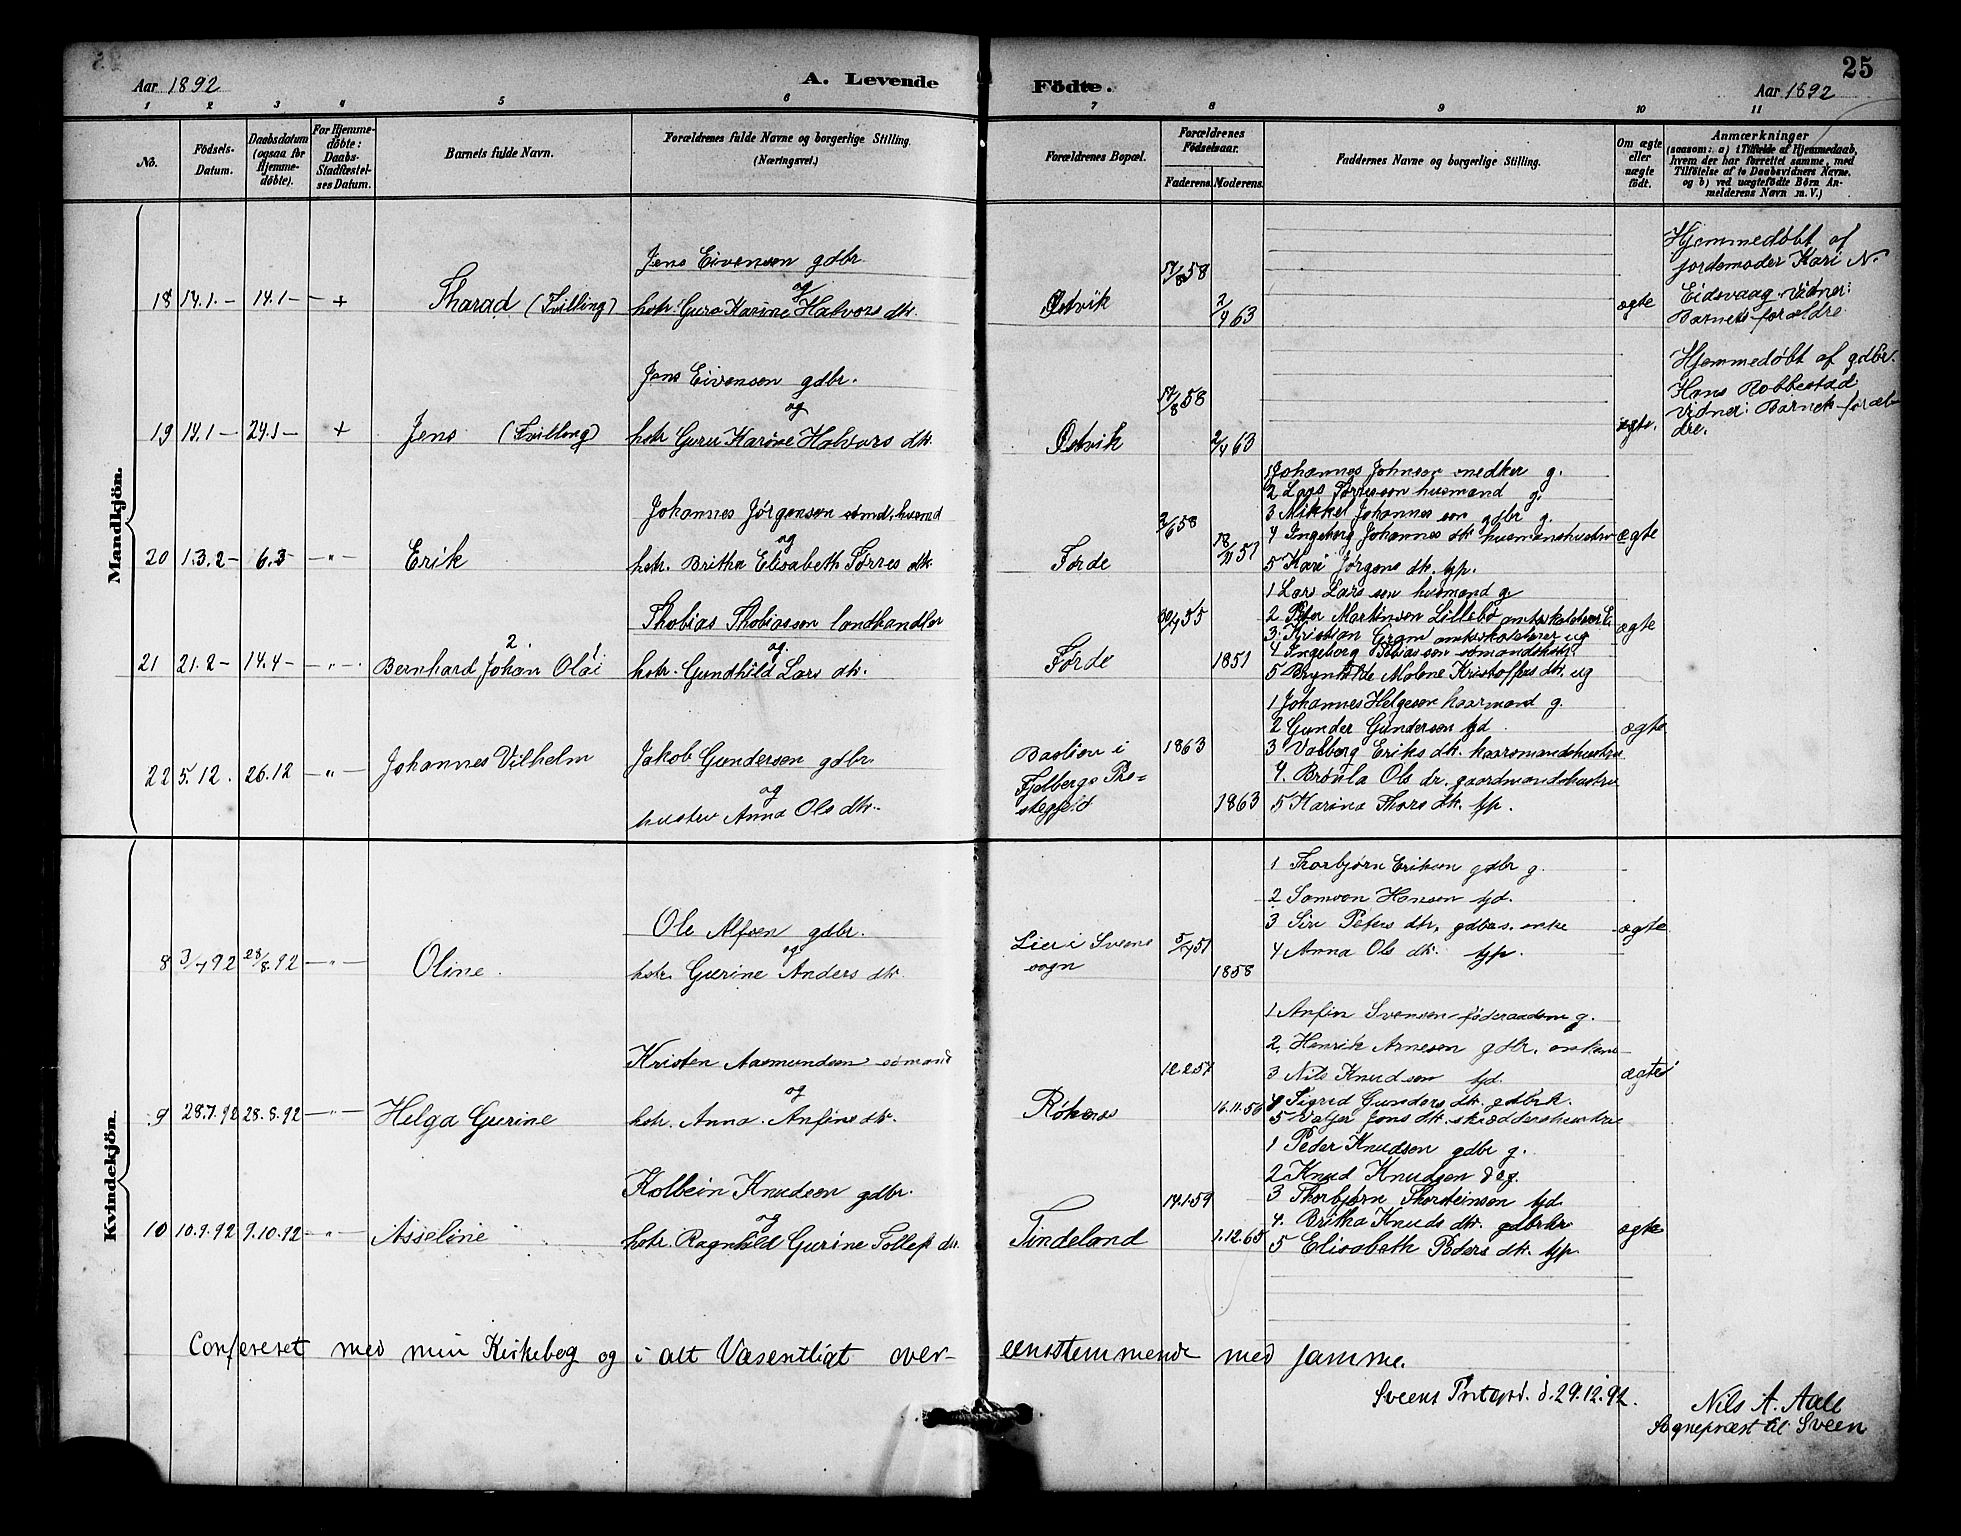 25
Aar 1892
A. Levende Födte.
Aar 1892
1 2 3 4 5 6 7 8 9 10 11
No.
Födsels-Datum.
Daabsdatum (ogsaa for Hjemme-döbte).
For Hjemme-döbte: Daabs-Stadfæstel-ses Datum.
Barnets fulde Navn.
Forældrenes fulde Navne og borgerlige Stilling.
(Næringsvei.)
Forældrenes Bopæl.
Forældrenes Födselsaar.
Faderens. Moderens.
Faddernes Navne og borgerlige Stilling.
Om ægte eller uægte födt.
Anmærkninger
(saasom: a) i Tilfælde af Hjemmedaab,
hvem der har forrettet samme, med
Tilföielse af to Daabsvidners Navne,
og b) ved uægtefödte Börn An-
melderens Navn m. V.)
Mandkjön.
18 14.1.- 14.1- - + Tharad (Tvilling)
Jens Eivensen gdbr.
og
hstr. Guro Karine Halvors dtr.
Østvik
17/8 58
2/4 63
ægte
Hjemmedøbt af
jordemoder Kari N
Eidsvaag. Vidner:
Barnets forældre
19 14.1- 24.1- + Jens (Tvilling)
Jens Eivensen gdbr.
og
hstr Guru Karine Halvors dtr.
Østvik
17/8 58
2/4 63
ægte.
Hjemmedøbt af gdbr.
Hans Robbestad
Vidner: Barnets foræl-
dre.
20 13.2- 6.3- -"- Erik
Johannes Jørgensen sømd, husmd
og
hstr. Britha Elisabeth Tørres dtr.
Førde
2/6 58
18/11 51
1 Johannes Johnson snedker g.
2 Lars Tørresson husmand g.
3 Mikkel Johannes son gdbr g.
4 Ingeborg Johannes dtr husmandshustru
5 Kari Jørgens dtr. tjp.
ægte
21 21.2- 14.4- -"-
2.
Bernhard Johan Olai
1
Thobias Thobiasson landhandler
og
hstr. Gundhild Lars dtr.
Førde
30/4 55
1851
1 Lars Lars son husmand g
2 Peter Martinsen Lillebø
3 Kristian Gram amtsskolelærer ug
4 Ingeborg Tobiasson sømandshstr
5 Brynhilde Malene Kristoffers dtr. ug
ægte
22 5.12. 26.12 -"- Johannes Vilhelm
Jakob Gundersen gdbr.
og
hustru Anna Ols dtr.
Bastion i
Fjelbergs Præ-
stegjeld
1863
1863
1 Johannes Helgesen kaarmand g.
2 Gunder Gundersen tjd.
3 Valborg Eriks dtr. kaarmandshustru
4. Brønla Ols dr. gaardmandshustru
5 Karina Thors dtr. tjp.
ægte
Kvindekjön.
8 3/7 92 28/8.92 -"- Oline
Ole Alfsen gdbr.
og
hstr. Gurine Anders dtr.
Lier i Sveens
sogn
5/7 51
1858
1 Thorbjørn Eriksen gdbr g.
2 Samson Hansen tjd.
3 Siri Peters dtr. gdbrs. enke
4 Anna Ols dtr. tjp.
ægte
9 28.7.92 28.8.92 -"- Helga Gurine
Kristen Aasmundsen sømand
og
hstr. Anna Anfins dtr.
Røkenes
12.2.57
16.11.56
1 Anfin Svensen føderaadsm g.
2. Henrik Arnesen gdbr. enkem
3 Nils Knudsen tjd.
4 Sigrid Gunders dtr. gdbrk.
5 Valjer Jons dtr. skræddershustru
ægte
10 10.9.92 9.10.92 -"- Asseline
Kolbein Knudsen gdbr.
og
hstr. Ragnhild Gurine Tollefs dtr.
Tindeland
14.1.59
1.12.65
1 Peder Knudsen gdbr g.
2 Knud Knudsen d°g.
3 Thorbjørn Thorsteinsen tjd.
4. Britha Knuds dtr. gdbrhr
5 Elisabeth Peders dtr. tjp.
ægte
Confereret med min Kirkebog og i alt Væsentligt over-eensstemmende med samme.
Sveens Prstgrd. d. 29.12.92.
Nils A. Aall
Sognepræst til Sveen